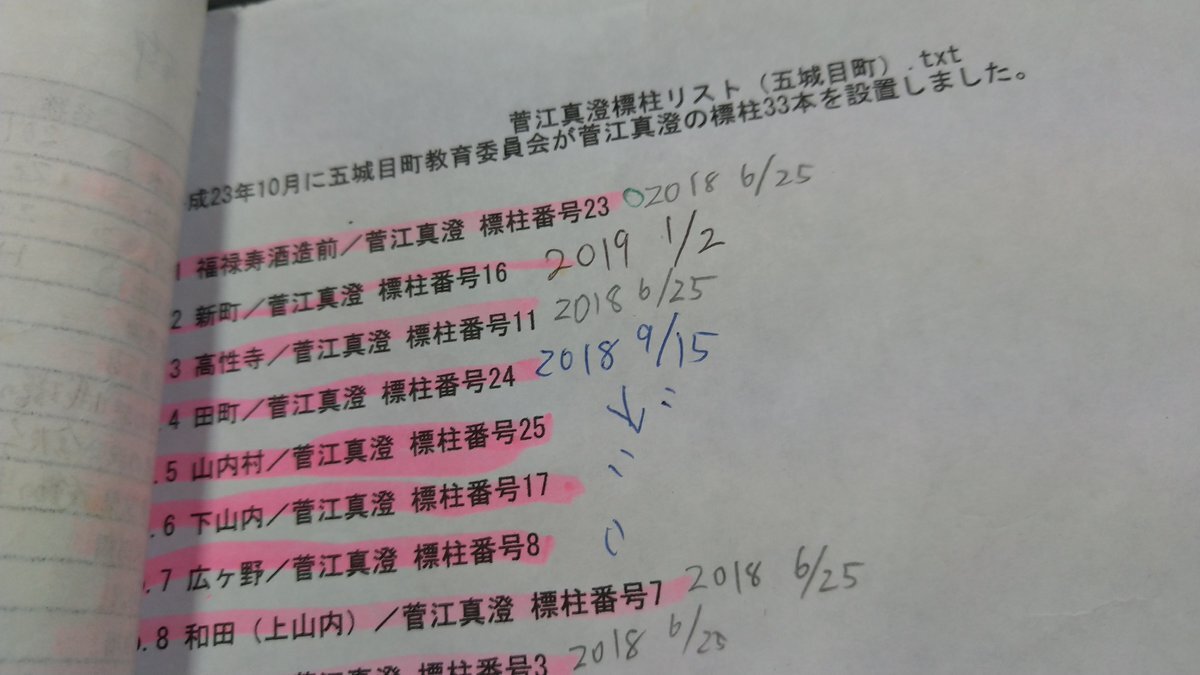 菅江真澄標柱リスト（五城目町）.txt
成23年10月に五城目町教育委員会が菅江真澄の標柱33本を設置しました。
1 福禄寿酒造前／菅江真澄 標柱番号23 ○2018 6/25
2 新町／菅江真澄 標柱番号16 2019 1/2
3 高性寺／菅江真澄 標柱番号11 2018 6/25
4 田町／菅江真澄 標柱番号24 2018 9/15
.5 山内村／菅江真澄 標柱番号25 ↓ 〃
.6 下山内／菅江真澄 標柱番号17 〃
.7 広ヶ野／菅江真澄 標柱番号8 〃
.8 和田（上山内）／菅江真澄 標柱番号7 2018 6/25
／菅江真澄 標柱番号3 2018 6/25